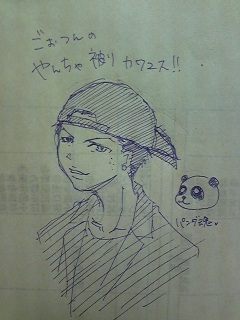 ごぉつんの
やんちゃ被り カワユス!!
パンダ魂。